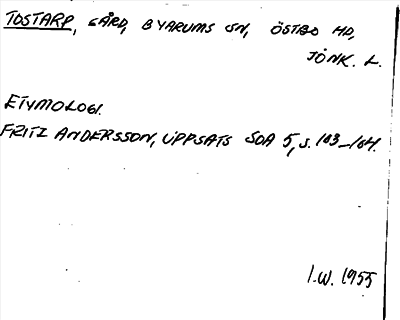 TOSTARP, GÅRD, BYARUMS SN, ÖSTBO HD,
JÖNK. L.
ETYMOLOGI.
FRITZ ANDERSSON, UPPSATS SOA 5, S. 103-104.
I.W. 1955